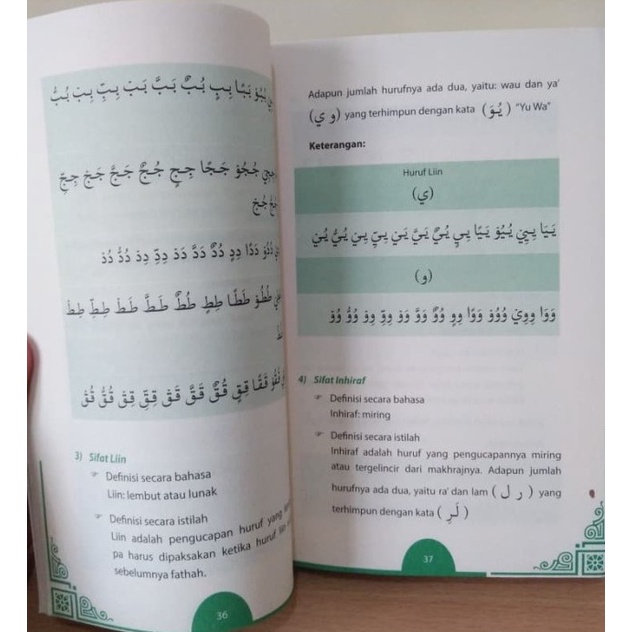 بُبُوْ بَبًا بِبٍ بُبٌ بَبَّ بَبْ بِبِّ بِبْ بُبُّ
جِجِيْ جُجُوْ جَجًا جِجٍ جُجٌ جَجَّ جَجْ جِجِّ
جُجُّ جُجْ
دُدُوْ دَدًا دِدٍ دُدٌ دَدَّ دَدْ دِدِّ دِدْ دُدُّ دُدْ
طُطُوْ طَطًا طِطٍ طُطٌ طَطَّ طَطْ طِطِّ طِطْ
قُقُوْ قَقًا قِقٍ قُقٌ قَقَّ قَقْ قِقِّ قِقْ قُقُّ قُقْ
3) Sifat Liin
Definisi secara bahasa
Liin: lembut atau lunak
Definisi secara istilah
Liin adalah pengucapan huruf yang
pa harus dipaksakan ketika huruf liin
sebelumnya fathah.
36
Adapun jumlah hurufnya ada dua, yaitu: wau dan ya'
(و ي) yang terhimpun dengan kata (يُوَ) "Yu Wa"
Keterangan:
Huruf Liin
(ي)
يَيَا يِيِيْ يُيُوْ يَيًا يِيٍ يُيٌ يَيَّ يَيْ يِيِّ يِيْ يُيُّ يُيْ
(و)
وَوَا وِوِيْ وُوُوْ وَوًا وِوٍ وُوٌ وَوَّ وَوْ وِوِّ وِوْ وُوُّ وُوْ
4) Sifat Inhiraf
Definisi secara bahasa
Inhiraf: miring
Definisi secara istilah
Inhiraf adalah huruf yang pengucapannya miring
atau tergelincir dari makhrajnya. Adapun jumlah
hurufnya ada dua, yaitu ra' dan lam (ر ل) yang
terhimpun dengan kata (لَرِ)
37